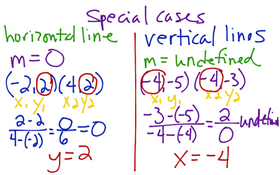 Special cases
horizontal line
m = 0
(-2, 2) (4, 2)
x₁ y₁ x₂ y₂
2 - 2 / 4 - (-2) = 0/6 = 0
y = 2
vertical lines
m = undefined
(-4, -5) (-4, -3)
x₁ y₁ x₂ y₂
-3 - (-5) / -4 - (-4) = 2/0 undefined
x = -4